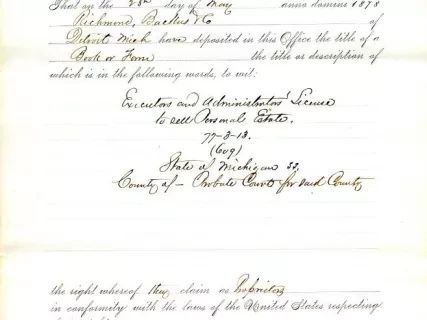 That on the 25th day of May anno domini 1878
Richmond, Backus & Co of
Detroit Mich have deposited in this Office the title of a
Book or Form the title or description of
which is in the following words, to wit:
Executors and Administrators' License
to sell Personal Estate.
77-3-13.
(609)
State of Michigan SS.
County of - Probate Court for said County
the right whereof they claim as Proprietors
in conformity with the laws of the United States respecting